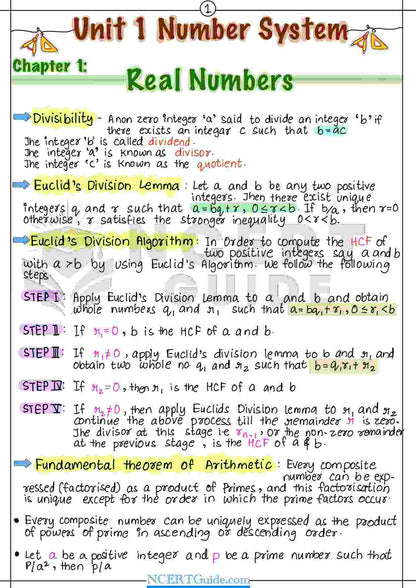 1
Unit 1 Number System
Chapter 1:
Real Numbers
Divisibility - A non zero integer 'a' said to divide an integer 'b' if
there exists an integar c such that b=ac
The integer 'b' is called dividend.
The integer 'a' is known as divisor.
The integer 'c' is known as the quotient.
Euclid's Division Lemma : Let a and b be any two positive
integers. Then there exist unique
integers q and r such that a=bq+r, 0≤r<b. If b/a, then r=0
otherwise, r satisfies the stronger inequality 0<r<b.
Euclid's Division Algorithm : In Order to compute the HCF of
two positive integers say a and b
with a >b by using Euclid's Algorithm. we follow the following
steps.
STEP I : Apply Euclid's Division Lemma to a and b and obtain
whole numbers q₁ and r₁ such that a=bq₁+r₁, 0≤r₁<b
STEP II : If r₁=0, b is the HCF of a and b.
STEP III : If r₁≠0, apply Euclid's division lemma to b and r₁ and
obtain two whole no q₁ and r₂ such that b=q₁r₁+r₂
STEP IV : If r₂=0, then r₁ is the HCF of a and b
STEP V : If r₂≠0, then apply Euclids Division lemma to r₁ and r₂
continue the above process till the remainder rₙ is zero.
The divisor at this stage i.e rₙ₋₁, or the non-zero remainder
at the previous stage, is the HCF of a & b.
Fundamental theorem of Arithmetic : Every composite
number can be exp-
ressed (factorised) as a product of Primes, and this factorisation
is unique except for the order in which the prime factors occur.
• Every composite number can be uniquely expressed as the product
of powers of prime in ascending or descending order.
• Let a be a positive integer and p be a prime number such that
P/a², then p/a
NCERT
GUIDE
NCERTGuide.com